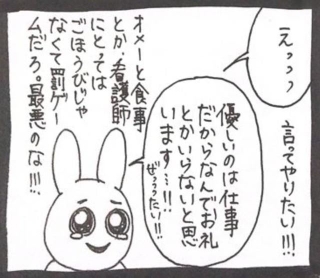 えっっっ
言ってやりたい!!!
優しいのは仕事
だからなんでお礼
とかいらないと思
います…!!!
ぜっったい!!
オメーと食事
とか、看護師
にとっては
ごほうびじゃ
なくて罰ゲー
ムだろ。最悪のな!!!